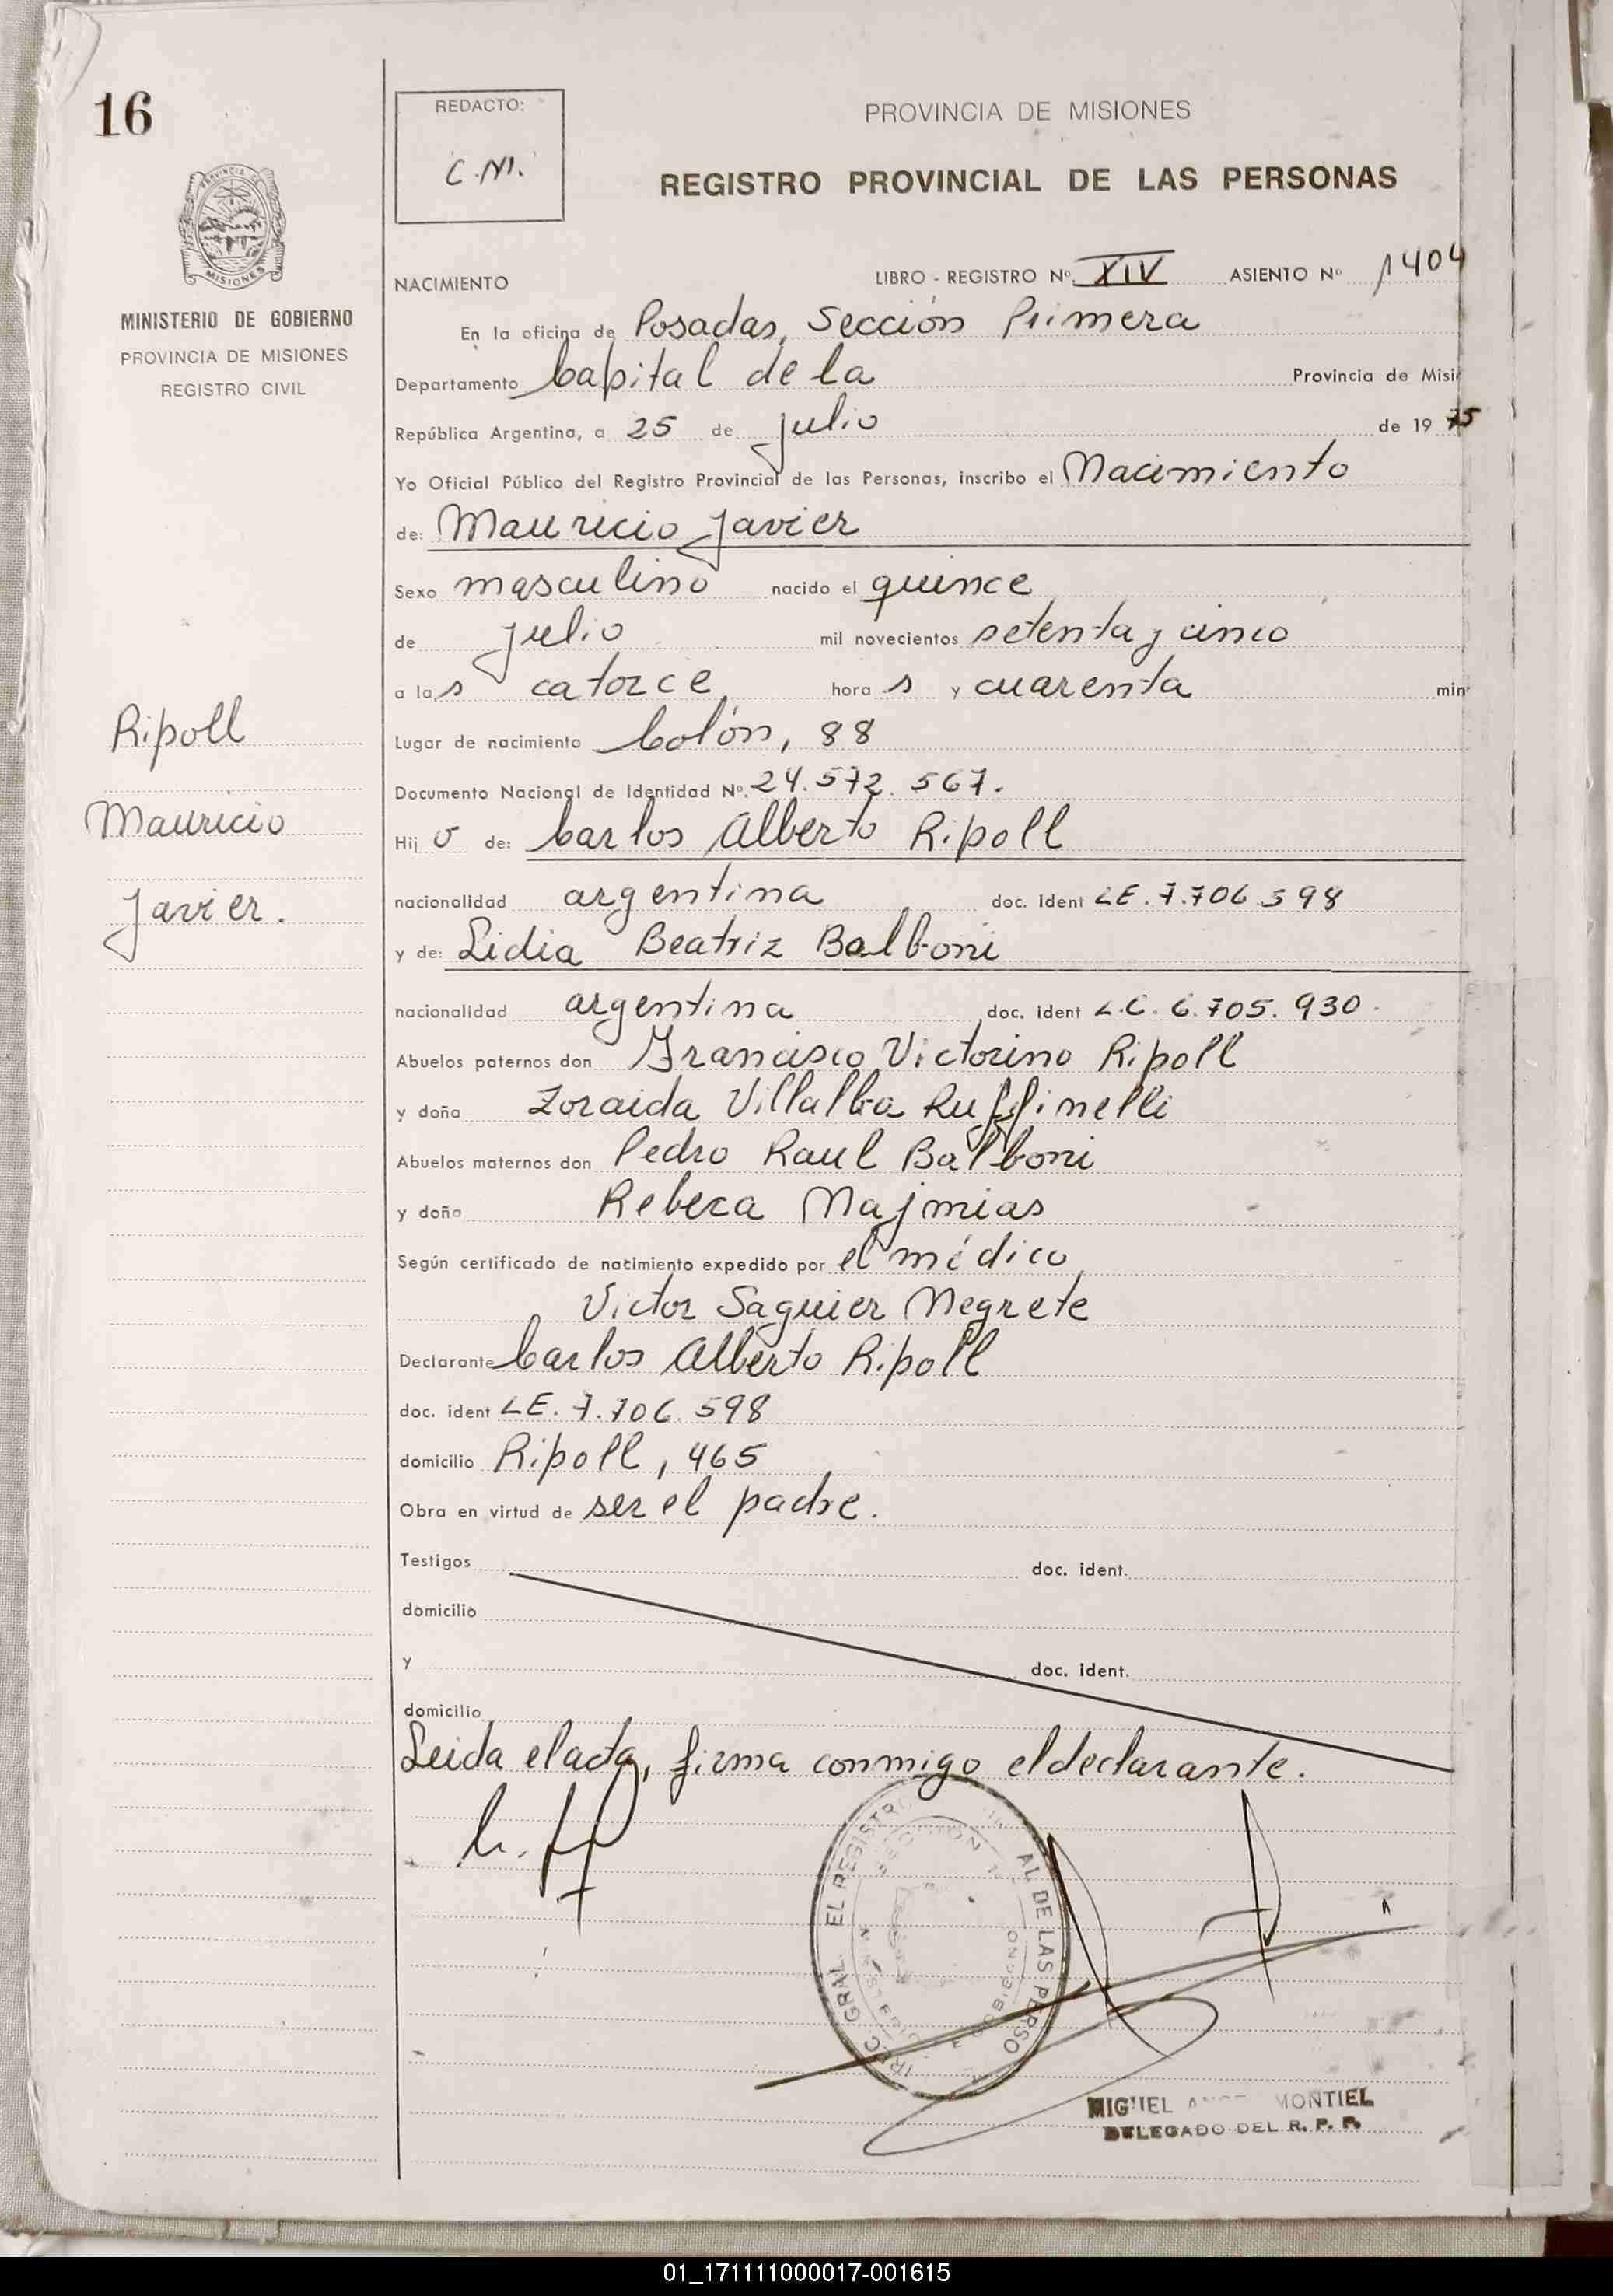 16
REDACTO:
C.M.
PROVINCIA DE MISIONES
REGISTRO PROVINCIAL DE LAS PERSONAS
MISIONES
MINISTERIO DE GOBIERNO
PROVINCIA DE MISIONES
REGISTRO CIVIL
NACIMIENTO LIBRO - REGISTRO Nº XIV ASIENTO Nº 1404
En la oficina de Posadas, Sección Primera
Departamento Capital de la Provincia de Misi
República Argentina, a 25 de julio de 1975
Yo Oficial Público del Registro Provincial de las Personas, inscribo el Nacimiento
de: Mauricio Javier
Sexo masculino nacido el quince
de julio mil novecientos setenta y cinco
a las catorce horas y cuarenta min
Lugar de nacimiento Colón, 88
Documento Nacional de Identidad Nº 24.572.567.
Hijo de: Carlos Alberto Ripoll
nacionalidad argentina doc. ident LE.7.706.598
y de: Lidia Beatriz Balboni
nacionalidad argentina doc. ident L.C. 6.705.930.
Abuelos paternos don Francisco Victorino Ripoll
y doña Zoraida Villalba Ruffinelli
Abuelos maternos don Pedro Raul Balboni
y doña Rebeca Majmias
Según certificado de nacimiento expedido por el médico
Victor Saguier Negrete
Declarante Carlos Alberto Ripoll
doc. ident LE. 7.706.598
domicilio Ripoll, 465
Obra en virtud de ser el padre.
Testigos doc. ident.
domicilio
y doc. ident.
domicilio
Leida el acta, firma conmigo el declarante.
Ripoll
Mauricio
Javier.
GRAL. EL REGISTRO AL DE LAS PERSO
MIGUEL MONTIEL
DELEGADO DEL R. P. P.
01_171111000017-001615